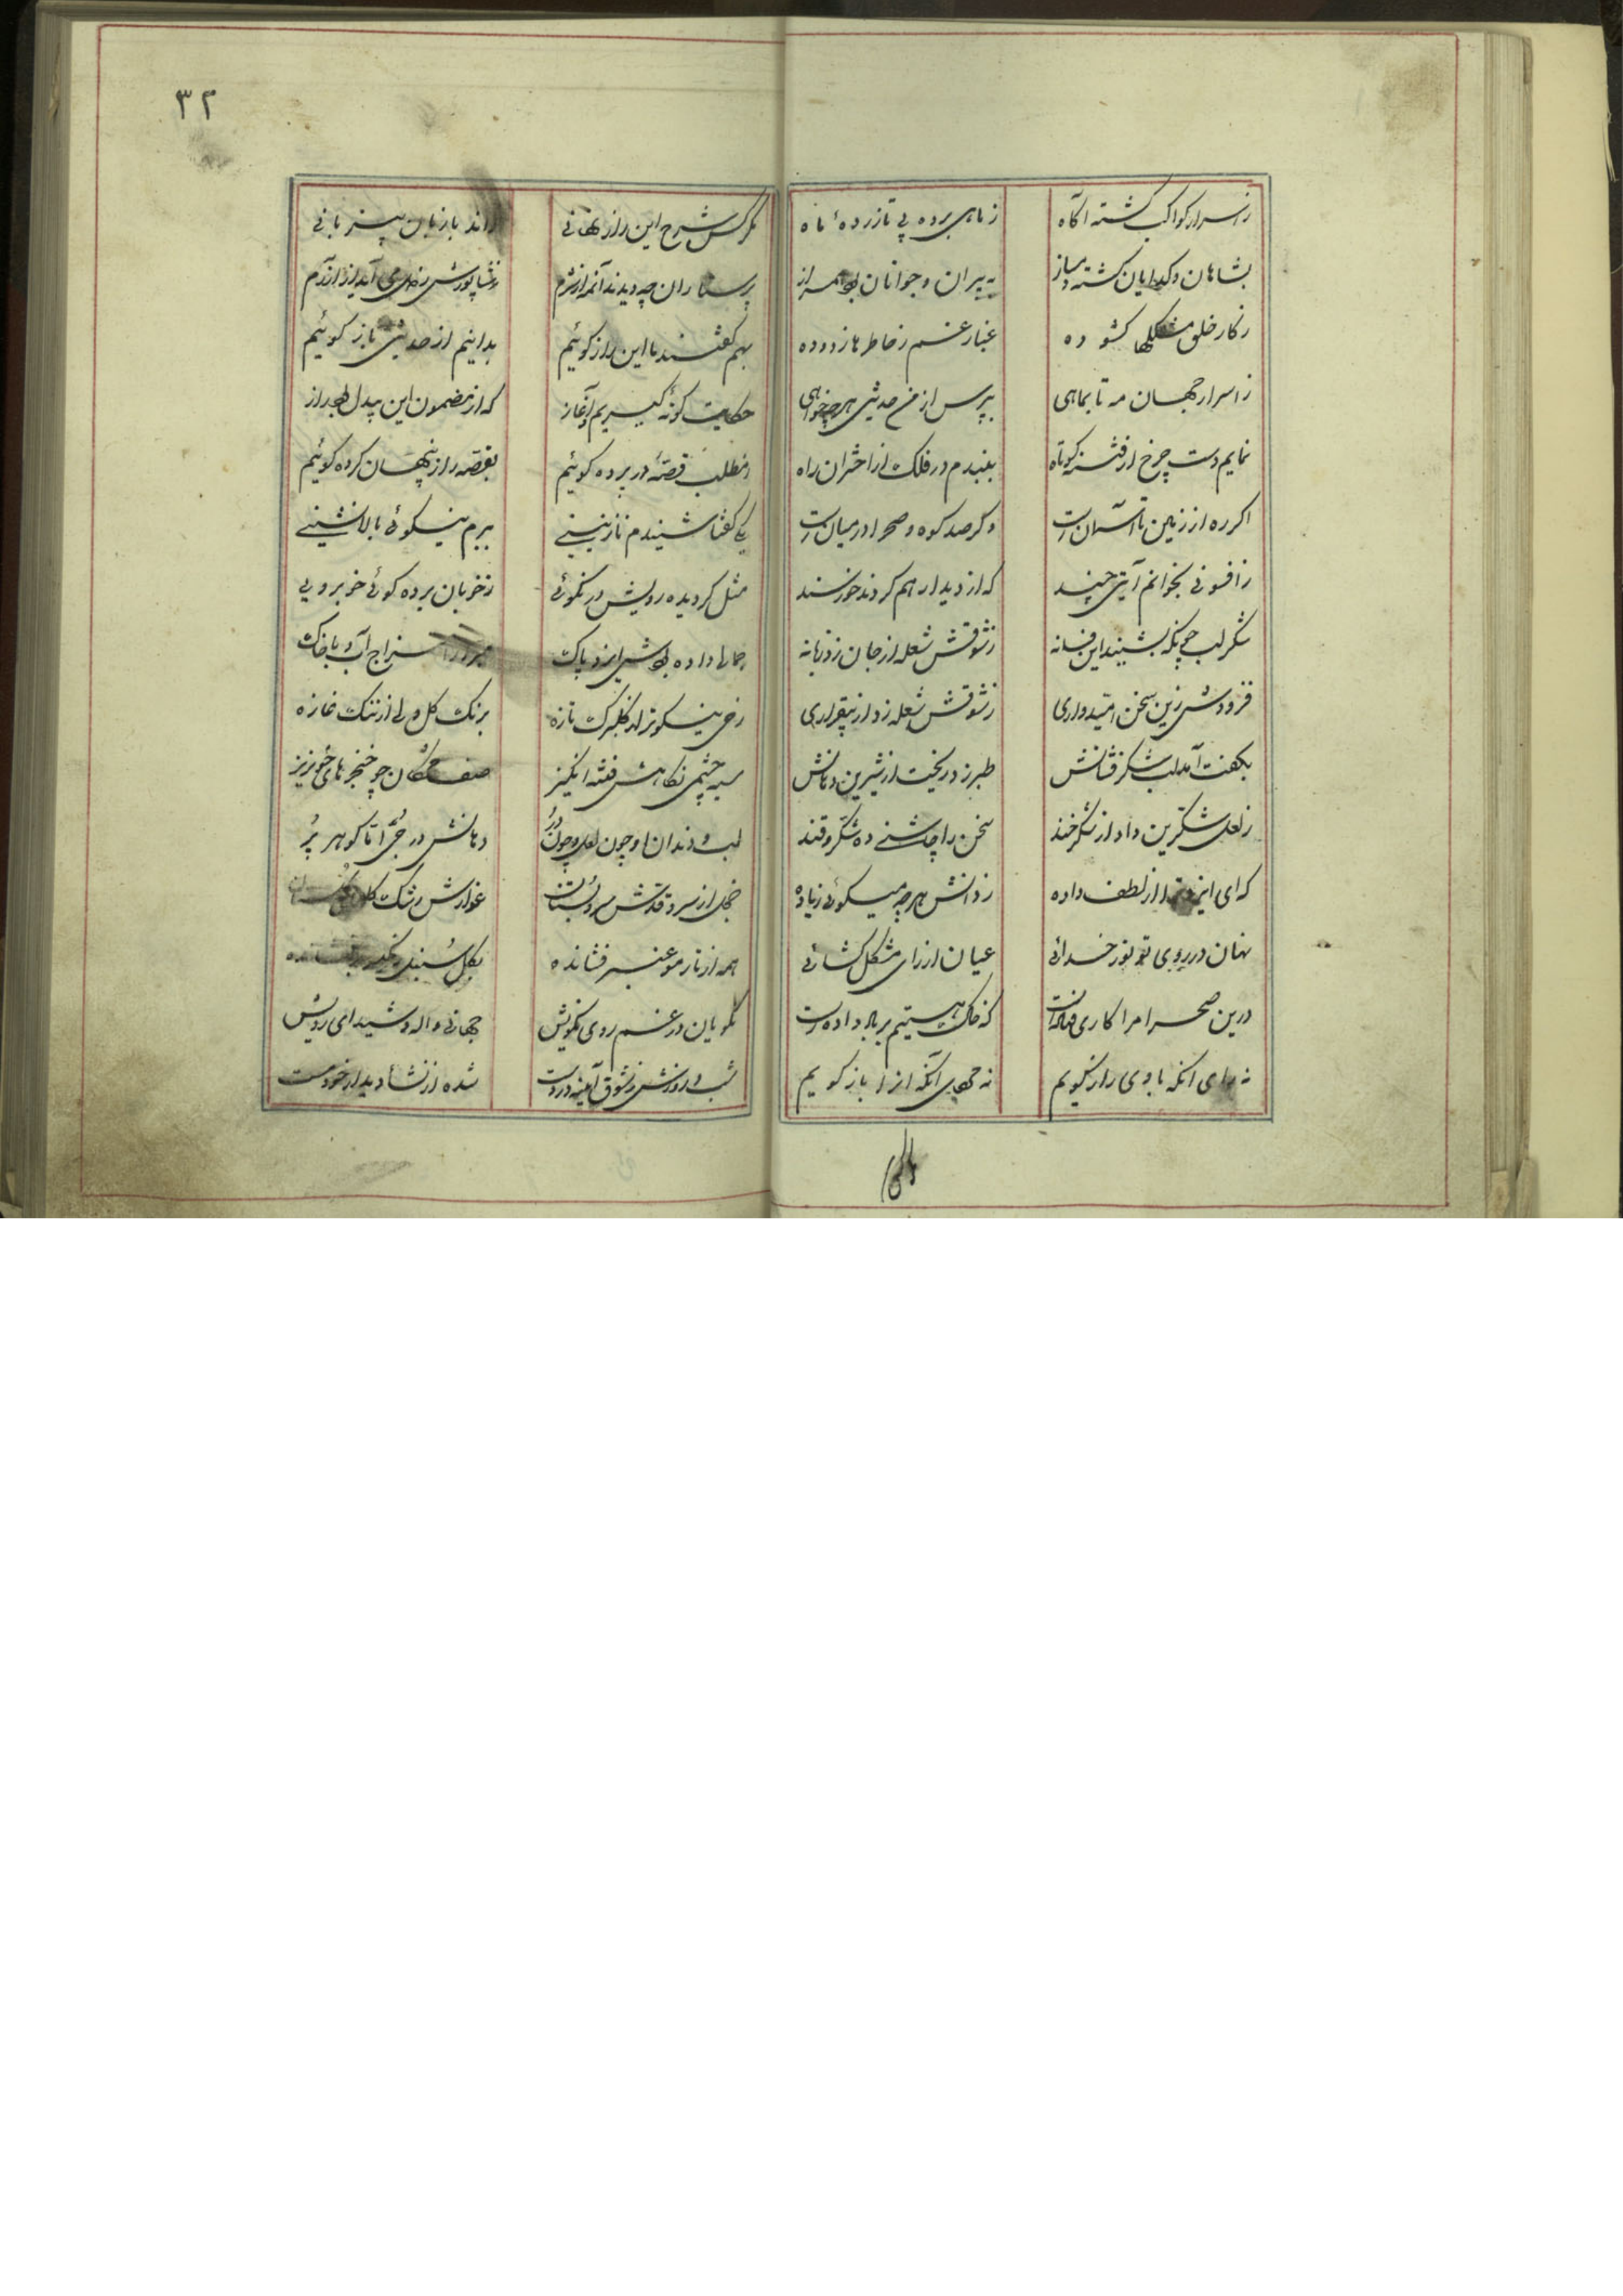 ز اسرار کواکب گشته آگاه
ز ماهی برده پی تا زرده ماه
بشاهان و گدایان گشته دمساز
به پیران و جوانان بوده همراز
ز کار خلق مشکلها گشوده
غبار غم ز خاطرها زدوده
ز اسرار جهان مه تا بماهی
بپرس از من حدیثی هرچه خواهی
نمایم دست چرخ از فتنه کوتاه
ببندم در فلک از اختران راه
اگر ره از زمین تا آسمانست
وگر صد کوه و صحرا در میانست
ز افسونی بخوانم آیتی چند
که از دیدار هم گردند خورسند
شکر لب چونکه بشنید این فسانه
ز شوقش شعله از جان زد زبانه
فزودش زین سخن امیدواری
ز شوقش شعله زد از بیقراری
بگفت آمد لب شکر فشانش
طبرزد ریخت از شیرین دهانش
ز لعل شکرین داد از شکرخند
سخن را چاشنی ده شکر و قند
که ای ایزد ترا از لطف داده
ز دانش هرچه میگوئی زیاده
نهان در روی تو نور خدائی
عیان از رای مشکل گشائی
درین صحرا مرا کاری فتادست
که خاک هستیم بر باد دادست
نه رای آنکه با وی راز گویم
نه جای آنکه آنرا باز گویم
مگر کس شرح این راز نهانی
راند با زبان بیزبانی
پرستاران چه دیدند آنمه از شرم
بهم گفتند با این راز گوئیم
بدانیم از حدیثی باز گوئیم
حکایت گونه گیریم آغاز
که از مضمون این بیدل بجد راز
ز مطلب قصه در پرده گوئیم
بقصه راز پنهان کرده گوئیم
یکی گفتا شنیدم نازنینی
ببزم نیکوئی بالانشینی
مثل گردیده رویش در نکوئی
ز خوبان برده گوی خوبرویی
جمالی داده بودش ایزد پاک
آب با خاک
رخی نیکوتر از گلبرگ تازه
برنگ گل ولی از رنگ غازه
سیه چشمی نگاهش فتنه انگیز
صف مژگان چو خنجرهای خونریز
لب و دندان او چون لعل و چون در
دهانش درجی اما گوهر پر
خجل از سرو قدش سرو بستان
عذارش رشک
همه از تار مو عنبر فشانده
بگل سنبل
نکویان در غم روی نکویش
جهانی واله و شیدای رویش
شب و روزش ز شوق آیینه در دست
شده از نشاء دیدار خود مست
۳۲